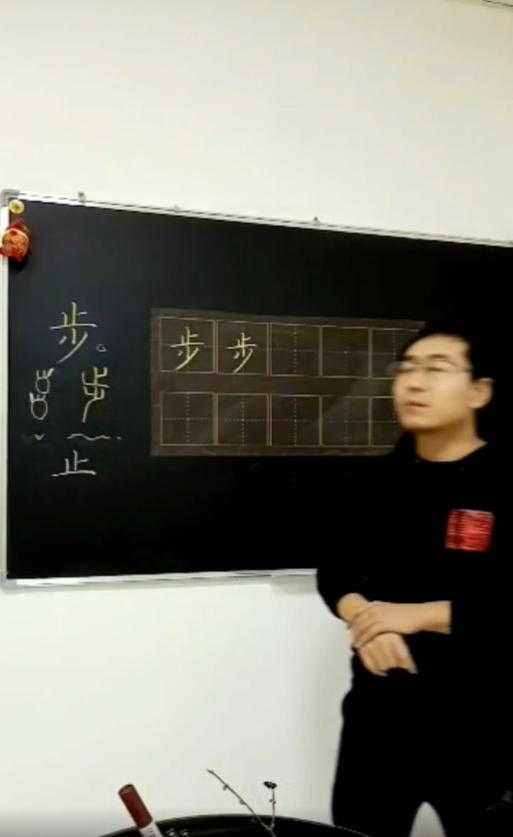 步。
步 步
步
止